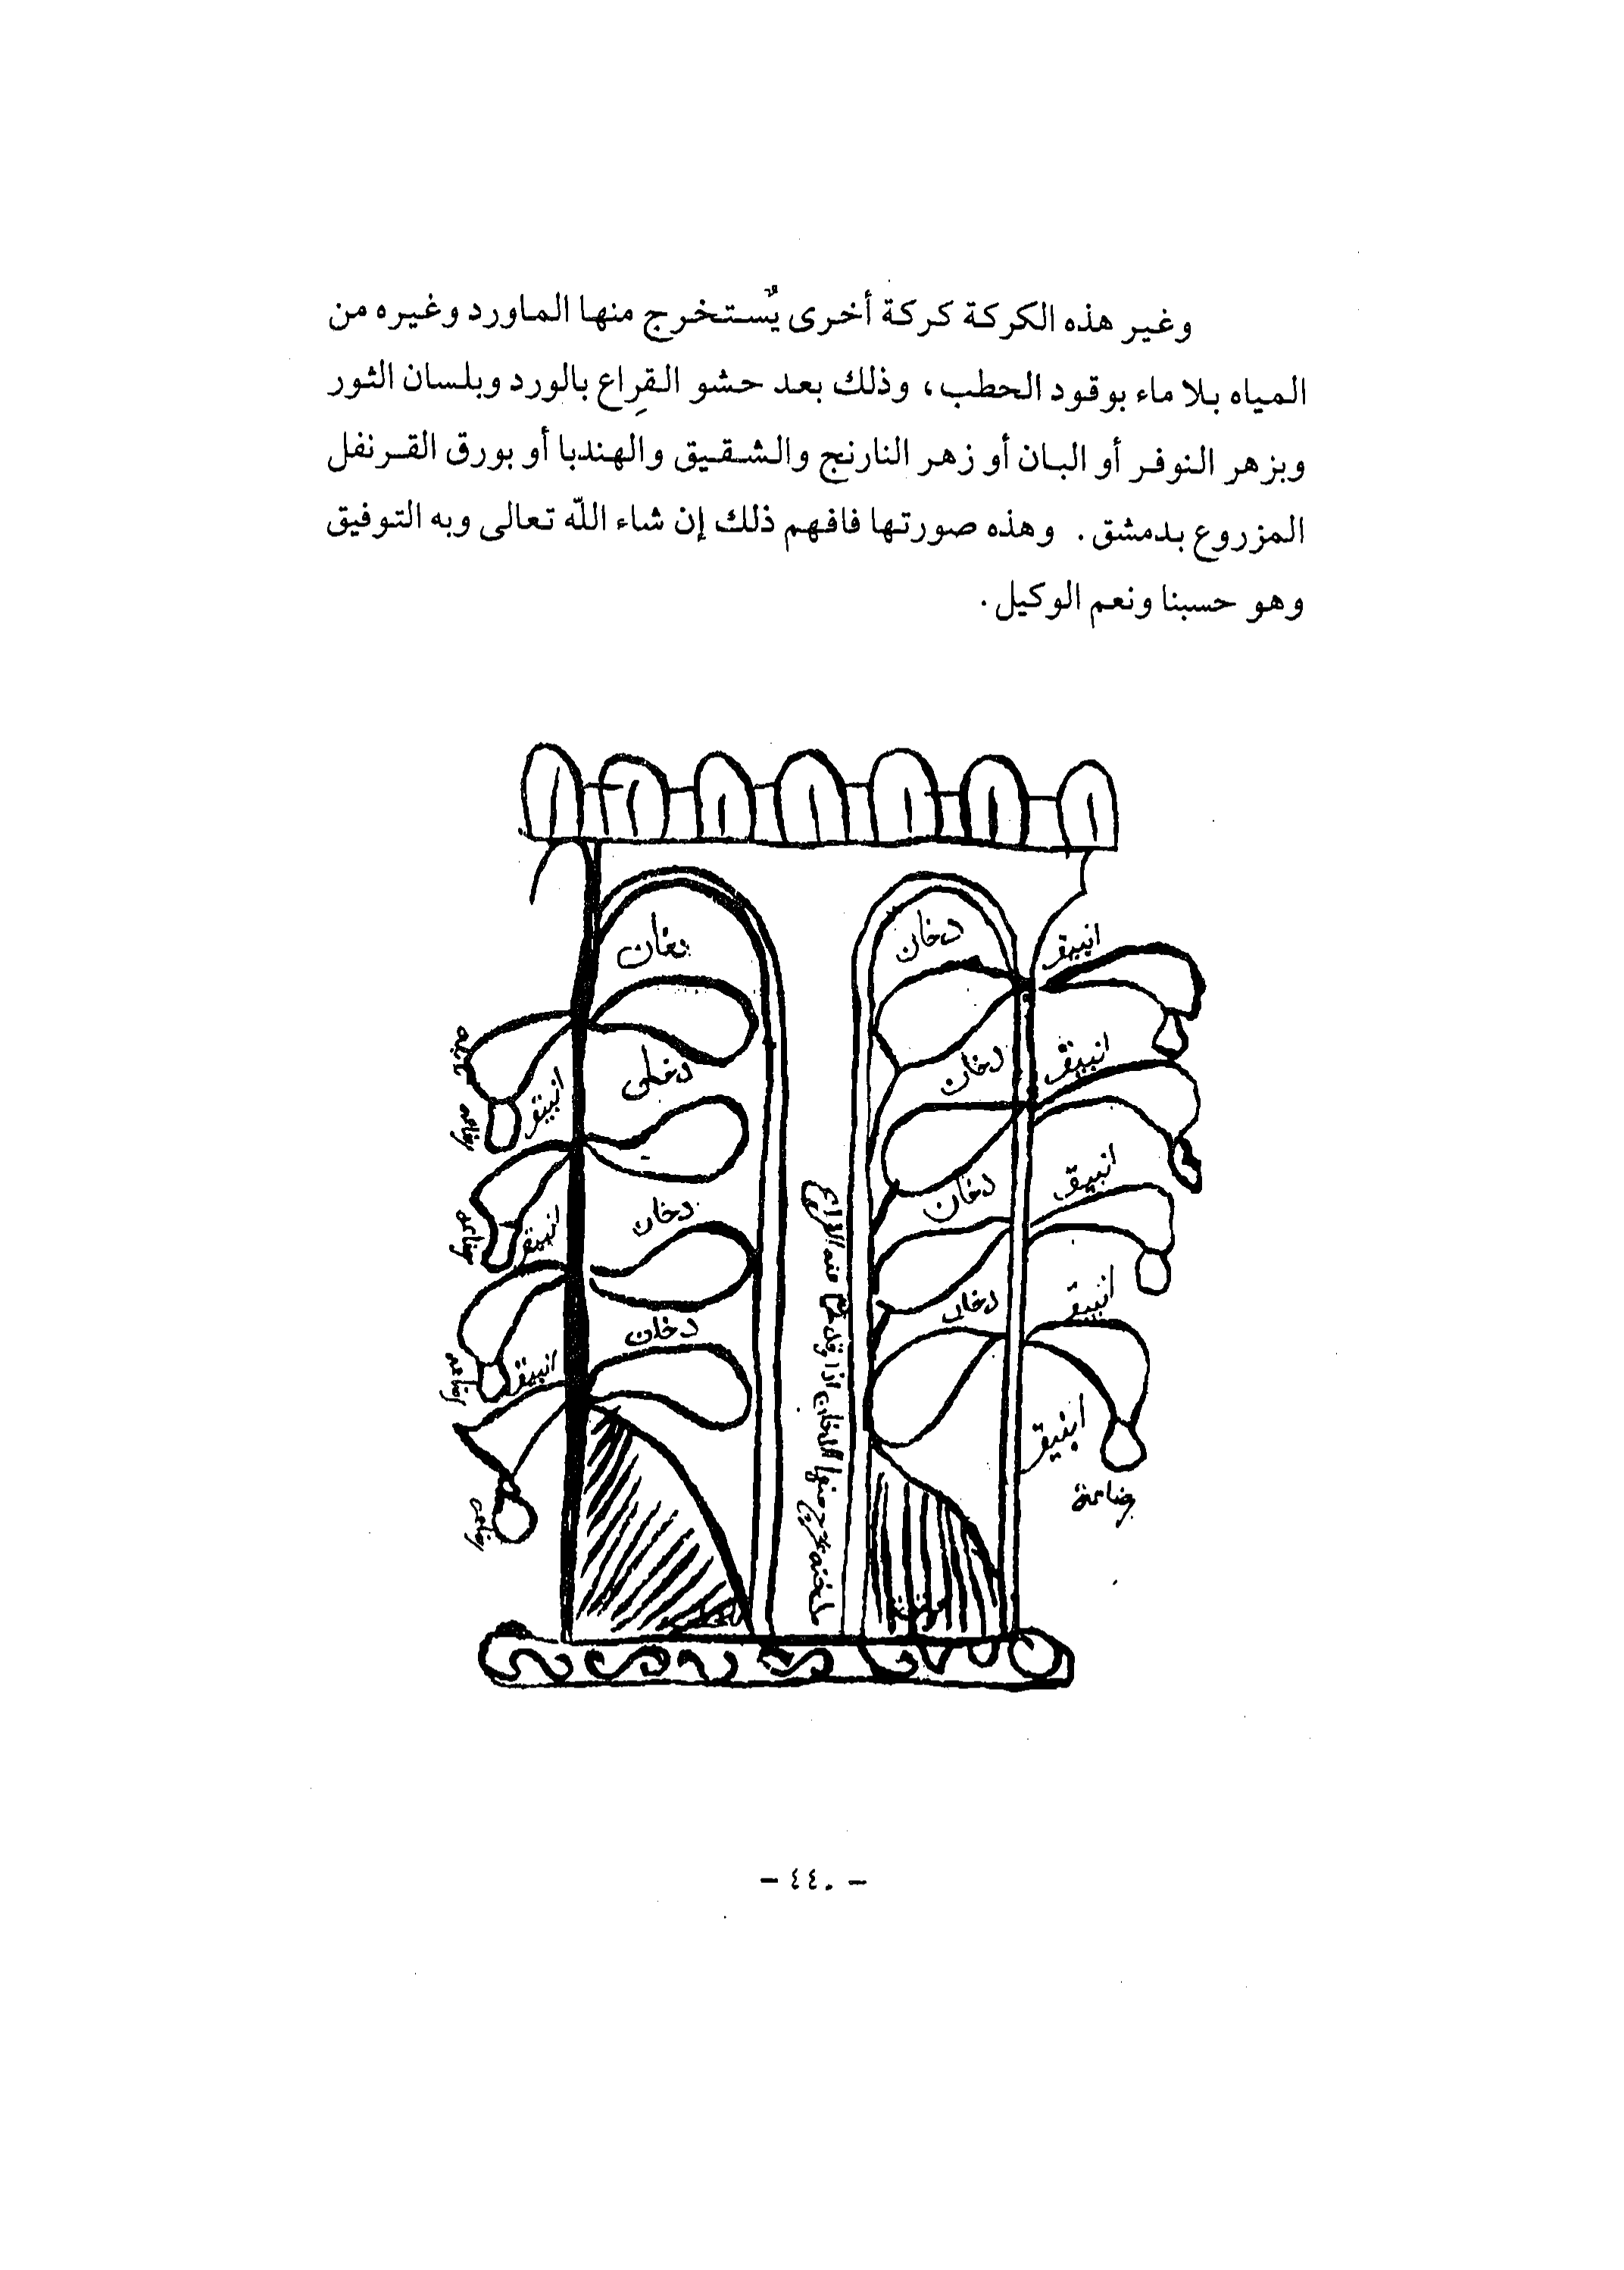 وغير هذه الكركة كركة أخرى يُستخرج منها الماورد وغيره من
المياه بلا ماء بوقود الحطب، وذلك بعد حشو القِراع بالورد وبلسان الثور
وبزهر النوفر أو البان أو زهر النارنج والشقيق والهندبا أو بورق القرنفل
المزروع بدمشق. وهذه صورتها فافهم ذلك إن شاء اللّه تعالى وبه التوفيق
وهو حسبنا ونعم الوكيل.
دخان
انبيق
دخان
انبيق
دخان
انبيق
دخان
انبيق
انبيق
دخان
دخان
انبيق
دخان
انبيق
دخان
انبيق
- ٤٤٠ -